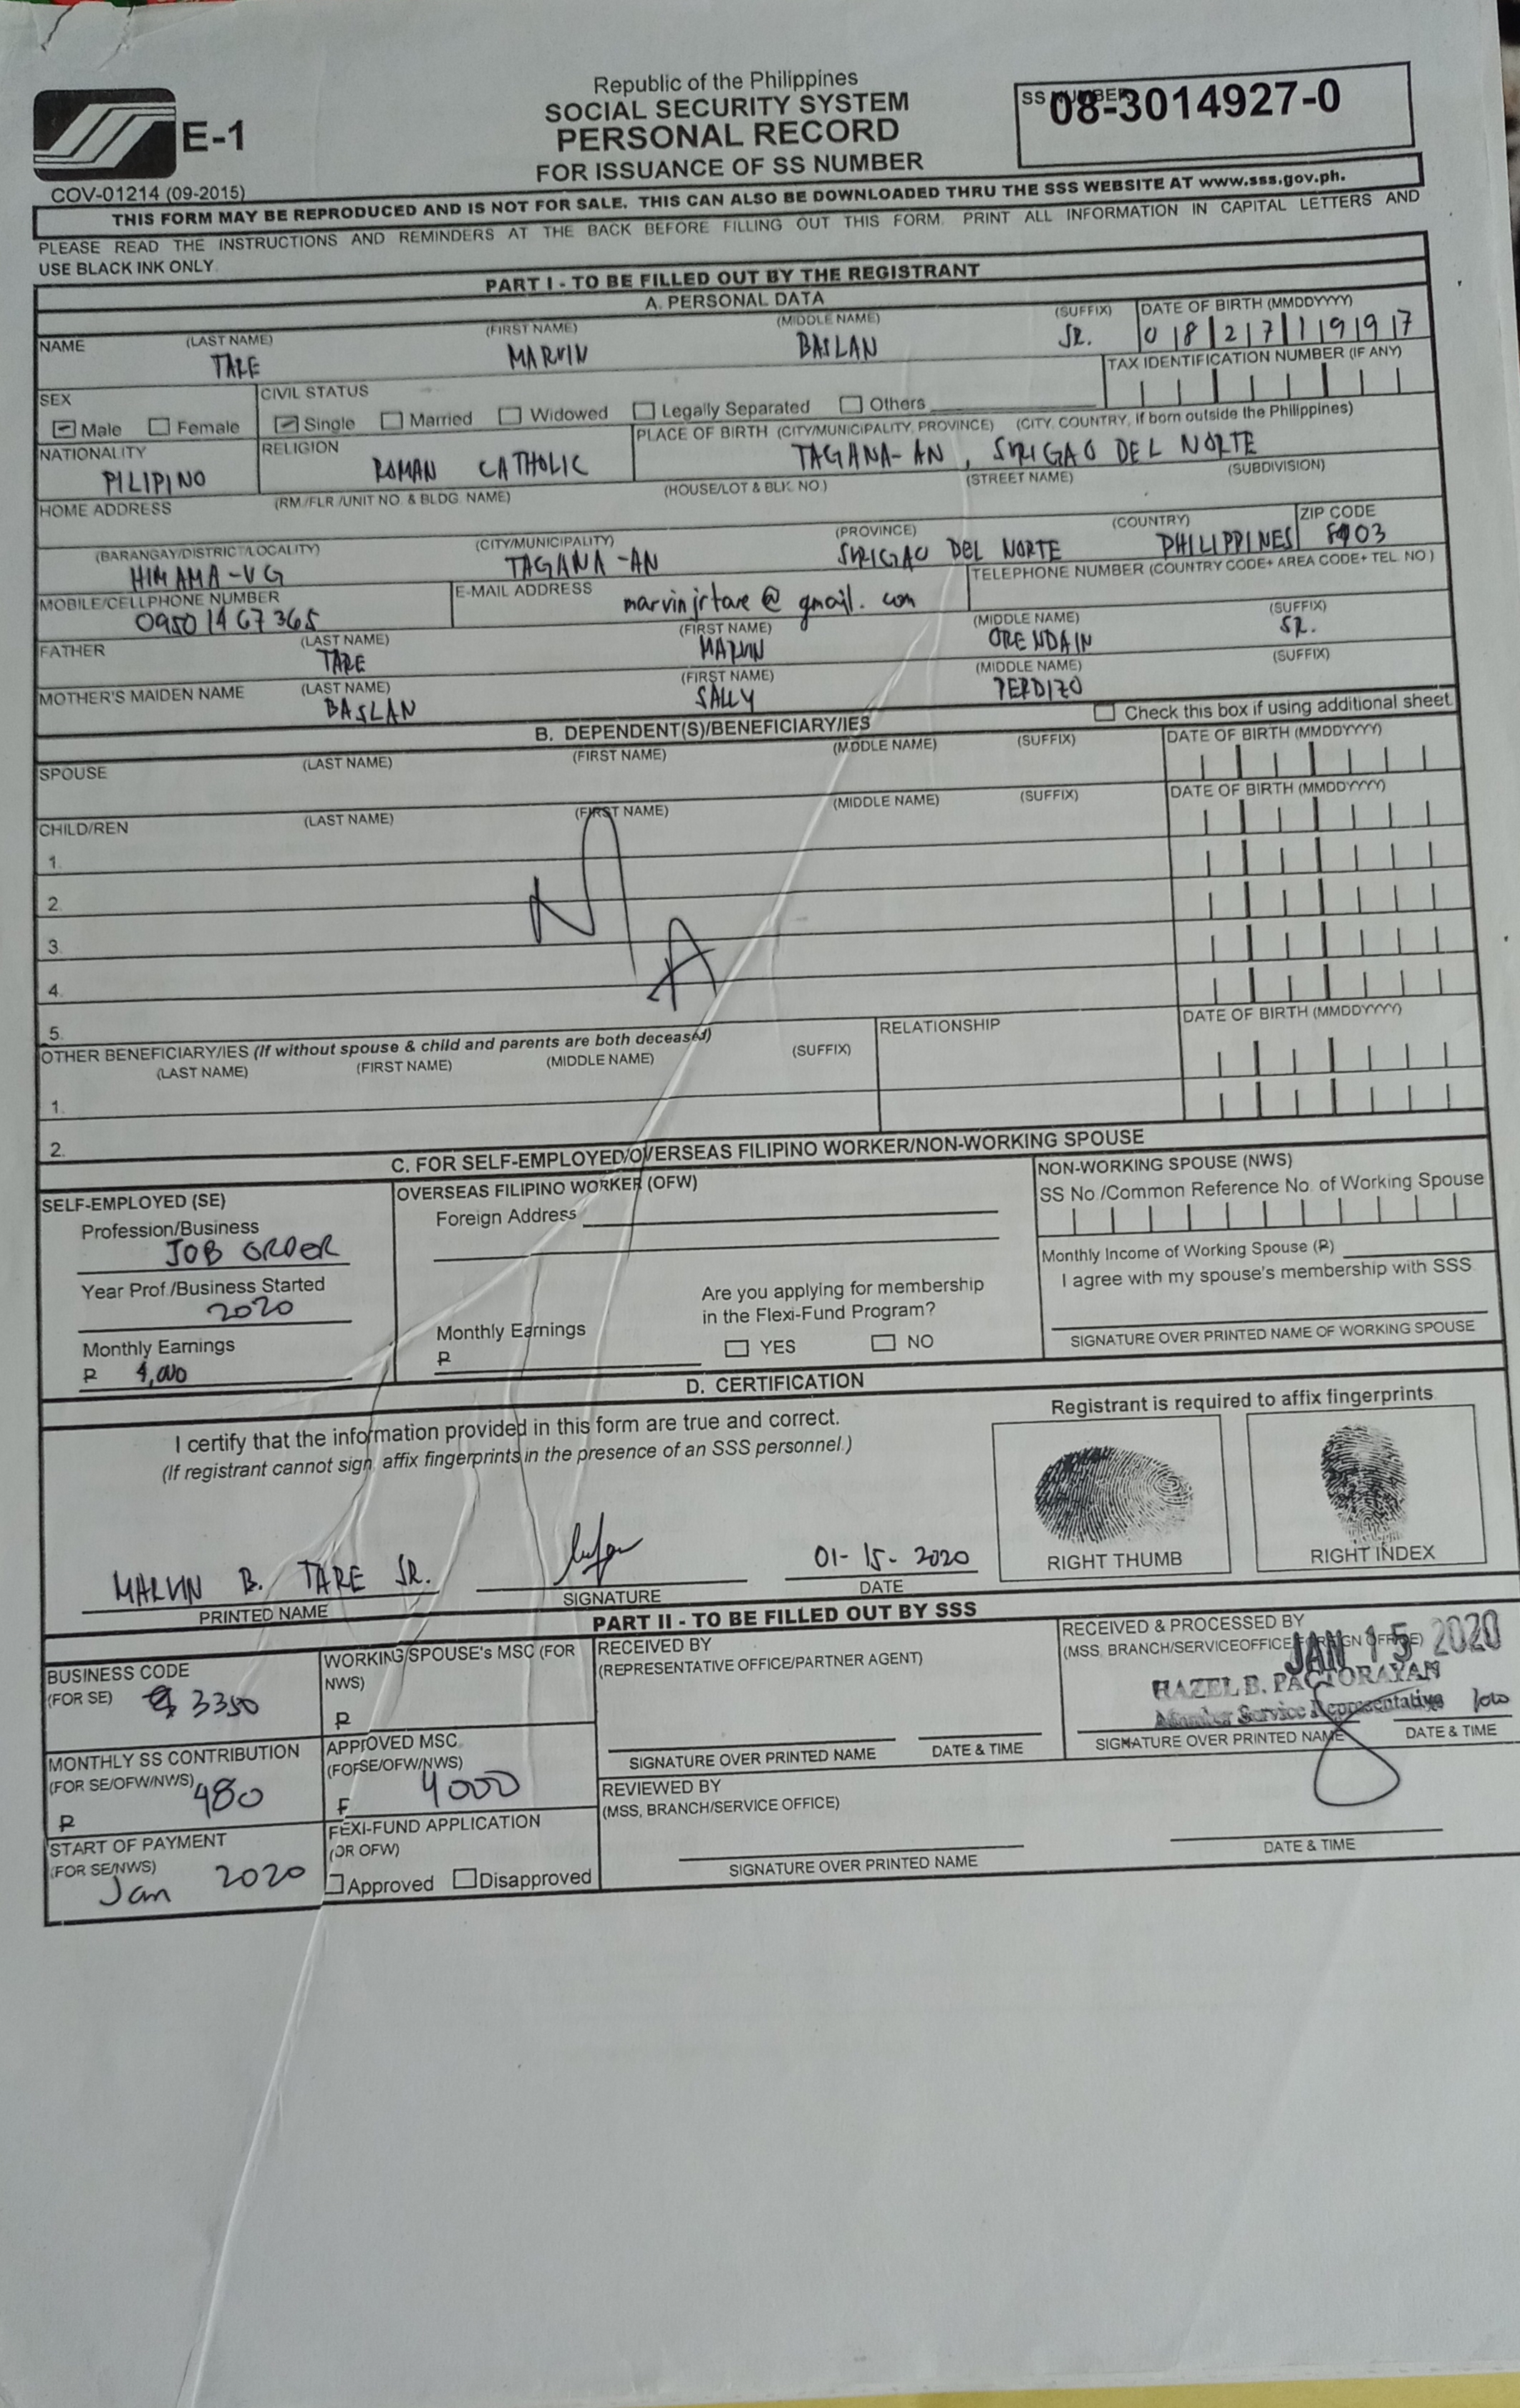 Republic of the Philippines
SOCIAL SECURITY SYSTEM
PERSONAL RECORD
FOR ISSUANCE OF SS NUMBER
E-1
COV-01214 (09-2015)
SS NUMBER
08-3014927-0
THIS FORM MAY BE REPRODUCED AND IS NOT FOR SALE. THIS CAN ALSO BE DOWNLOADED THRU THE SSS WEBSITE AT www.sss.gov.ph.
PLEASE READ THE INSTRUCTIONS AND REMINDERS AT THE BACK BEFORE FILLING OUT THIS FORM. PRINT ALL INFORMATION IN CAPITAL LETTERS AND
USE BLACK INK ONLY.
PART I - TO BE FILLED OUT BY THE REGISTRANT
A. PERSONAL DATA
NAME (LAST NAME) (FIRST NAME) (MIDDLE NAME) (SUFFIX) DATE OF BIRTH (MMDDYYYY)
TARE MARVIN BASLAN SR. 08271997
TAX IDENTIFICATION NUMBER (IF ANY)
SEX CIVIL STATUS
Male Female Single Married Widowed Legally Separated Others
NATIONALITY RELIGION PLACE OF BIRTH (CITY/MUNICIPALITY, PROVINCE) (CITY, COUNTRY, if born outside the Philippines)
PILIPINO ROMAN CATHOLIC TAGANA-AN, SURIGAO DEL NORTE
HOME ADDRESS (RM./FLR./UNIT NO. & BLDG. NAME) (HOUSE/LOT & BLK. NO.) (STREET NAME) (SUBDIVISION)
(BARANGAY/DISTRICT/LOCALITY) (CITY/MUNICIPALITY) (PROVINCE) (COUNTRY) ZIP CODE
HIMAMA-UG TAGANA-AN SURIGAO DEL NORTE PHILIPPINES 8403
MOBILE/CELLPHONE NUMBER E-MAIL ADDRESS TELEPHONE NUMBER (COUNTRY CODE+ AREA CODE+ TEL. NO.)
09501467365 marvinjrtare@gmail.com
FATHER (LAST NAME) (FIRST NAME) (MIDDLE NAME) (SUFFIX)
TARE MARVIN ORENDAIN SR.
MOTHER'S MAIDEN NAME (LAST NAME) (FIRST NAME) (MIDDLE NAME) (SUFFIX)
BASLAN SALLY PERDIZO
B. DEPENDENT(S)/BENEFICIARY/IES
Check this box if using additional sheet.
SPOUSE (LAST NAME) (FIRST NAME) (MIDDLE NAME) (SUFFIX) DATE OF BIRTH (MMDDYYYY)
CHILD/REN (LAST NAME) (FIRST NAME) (MIDDLE NAME) (SUFFIX) DATE OF BIRTH (MMDDYYYY)
1.
2.
N/A
3.
4.
5.
OTHER BENEFICIARY/IES (If without spouse & child and parents are both deceased) RELATIONSHIP DATE OF BIRTH (MMDDYYYY)
(LAST NAME) (FIRST NAME) (MIDDLE NAME) (SUFFIX)
1.
2.
C. FOR SELF-EMPLOYED/OVERSEAS FILIPINO WORKER/NON-WORKING SPOUSE
SELF-EMPLOYED (SE)
Profession/Business
JOB ORDER
Year Prof./Business Started
2020
Monthly Earnings
₱ 4,000
OVERSEAS FILIPINO WORKER (OFW)
Foreign Address
Monthly Earnings
₱
Are you applying for membership
in the Flexi-Fund Program?
YES NO
NON-WORKING SPOUSE (NWS)
SS No./Common Reference No. of Working Spouse
Monthly Income of Working Spouse (₱)
I agree with my spouse's membership with SSS.
SIGNATURE OVER PRINTED NAME OF WORKING SPOUSE
D. CERTIFICATION
I certify that the information provided in this form are true and correct.
(If registrant cannot sign, affix fingerprints in the presence of an SSS personnel.)
Registrant is required to affix fingerprints.
MARVIN B. TARE SR.
PRINTED NAME
SIGNATURE
01-15-2020
DATE
RIGHT THUMB
RIGHT INDEX
PART II - TO BE FILLED OUT BY SSS
BUSINESS CODE
(FOR SE) 3350
WORKING SPOUSE's MSC (FOR
NWS)
₱
MONTHLY SS CONTRIBUTION
(FOR SE/OFW/NWS)
₱ 480
APPROVED MSC
(FOR SE/OFW/NWS)
₱ 4000
START OF PAYMENT
(FOR SE/NWS)
Jan 2020
FLEXI-FUND APPLICATION
(FOR OFW)
Approved Disapproved
RECEIVED BY
(REPRESENTATIVE OFFICE/PARTNER AGENT)
SIGNATURE OVER PRINTED NAME DATE & TIME
RECEIVED & PROCESSED BY
(MSS, BRANCH/SERVICE OFFICE/FOREIGN OFFICE)
JAN 15 2020
HAZEL B. PACTORAYAN
Member Service Representative
SIGNATURE OVER PRINTED NAME DATE & TIME
REVIEWED BY
(MSS, BRANCH/SERVICE OFFICE)
SIGNATURE OVER PRINTED NAME DATE & TIME